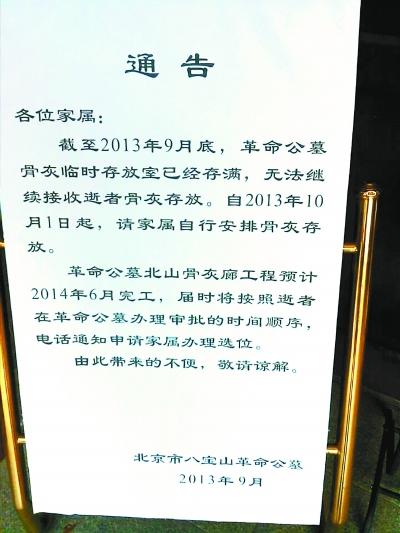 通告
各位家属：
截至2013年9月底，革命公墓
骨灰临时存放室已经存满，无法继
续接收逝者骨灰存放。自2013年10
月1日起，请家属自行安排骨灰存
放。
革命公墓北山骨灰廊工程预计
2014年6月完工，届时将按照逝者
在革命公墓办理审批的时间顺序，
电话通知申请家属办理选位。
由此带来的不便，敬请谅解。
北京市八宝山革命公墓
2013年9月